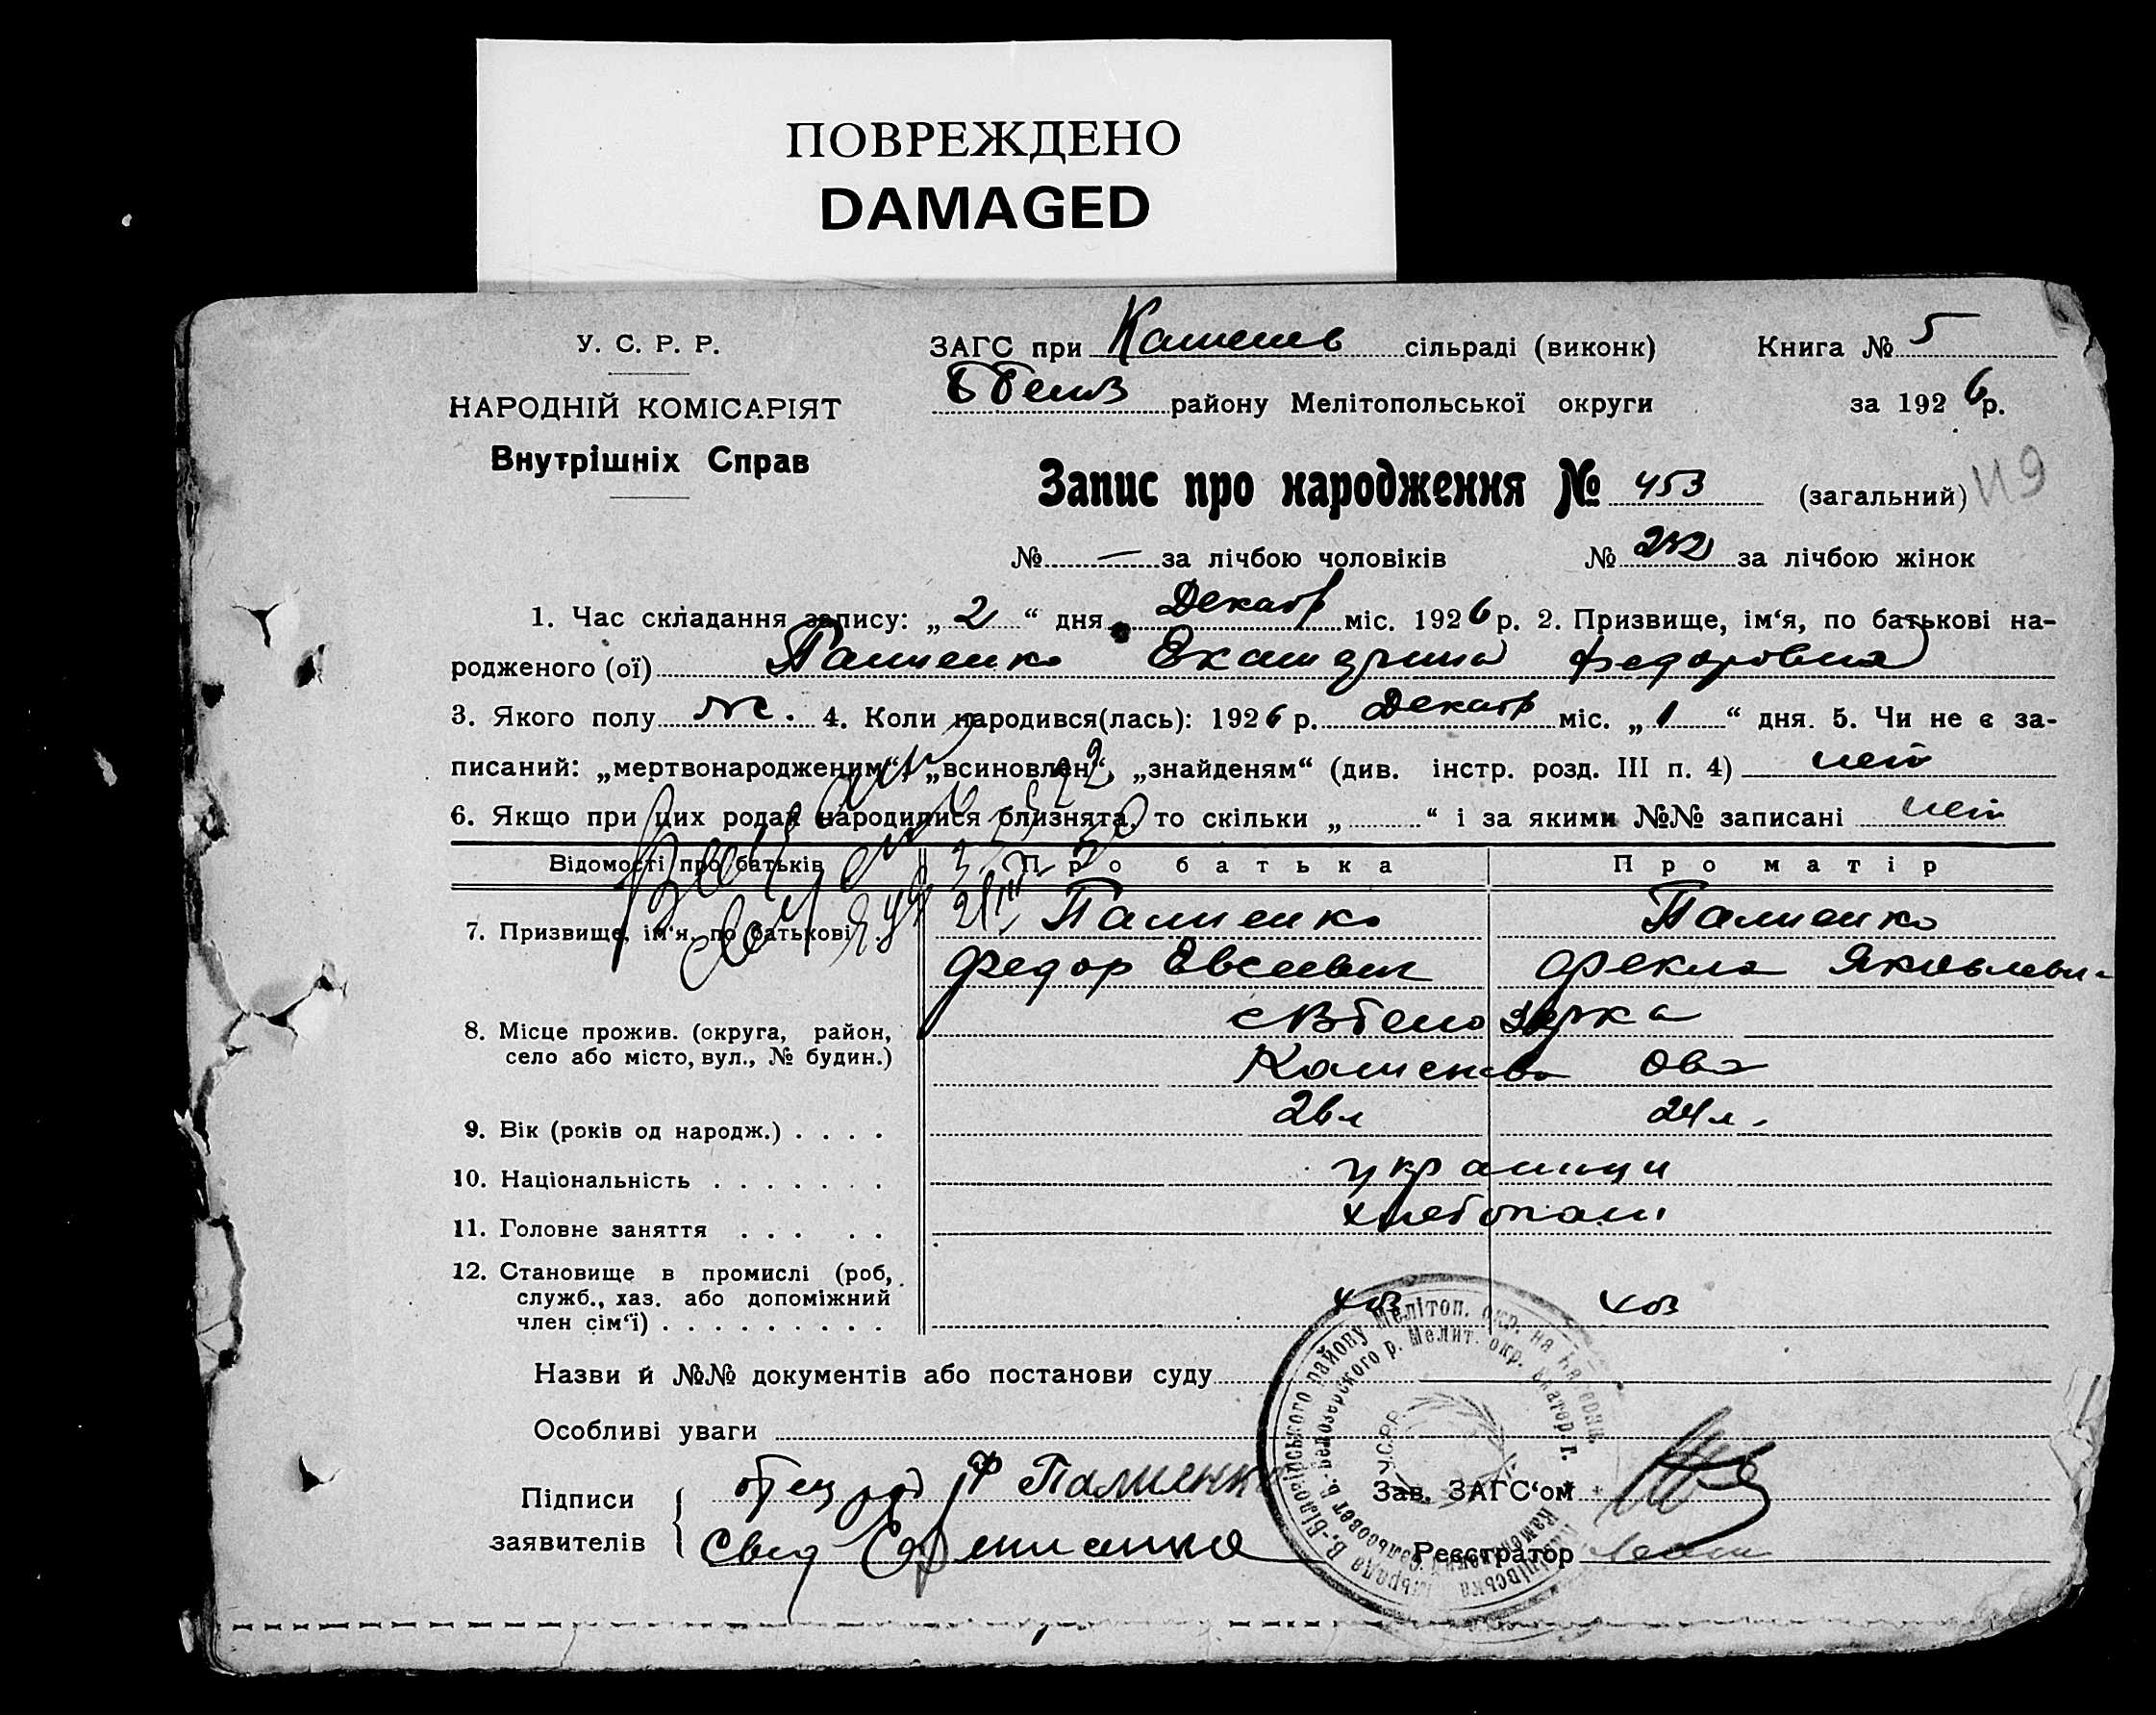 ПОВРЕЖДЕНО
DAMAGED
У. С. Р. Р.
НАРОДНІЙ КОМІСАРІЯТ
Внутрішніх Справ
ЗАГС при Каменев сільраді (виконк) Книга № 5
району Мелітопольської округи за 1926 р.
Запис про народження № 453 (загальний) 119
№ — за лічбою чоловіків № за лічбою жінок
1. Час складання запису: „ 2 “ дня Декабр міс. 1926 р. 2. Призвище, ім‘я, по батькові на-
родженого (ої) Екатерина Федоровна
3. Якого полу ж. 4. Коли народився(лась): 1926 р. Декабр міс. „ 1 “ дня. 5. Чи не є за-
писаний: „мертвонародженим“, „всиновлен“, „знайденям“ (див. інстр. розд. III п. 4) нет
6. Якщо при цих родах народилися близнята, то скільки „ “ і за якими №№ записані нет
Відомості про батьків Про батька Про матір
7. Призвище, ім‘я, по батькові
Федор Евсеевич Фекла Яковлевн
8. Місце прожив. (округа, район,
село або місто, вул., № будин.)
с В Белозерка
9. Вік (років од народж.) . . . . 26 л 24 л.
10. Національність . . . . . . . украинци
11. Головне заняття . . . . . хлебопаш
12. Становище в промислі (роб,
служб., хаз. або допоміжний
член сім‘ї) . . . . . . . . . хоз хоз
Назви й №№ документів або постанови суду
Особливі уваги
Підписи
заявителів
отец
Свид
Зав. ЗАГС‘ом
Реєстратор
У.С.Р.Р.